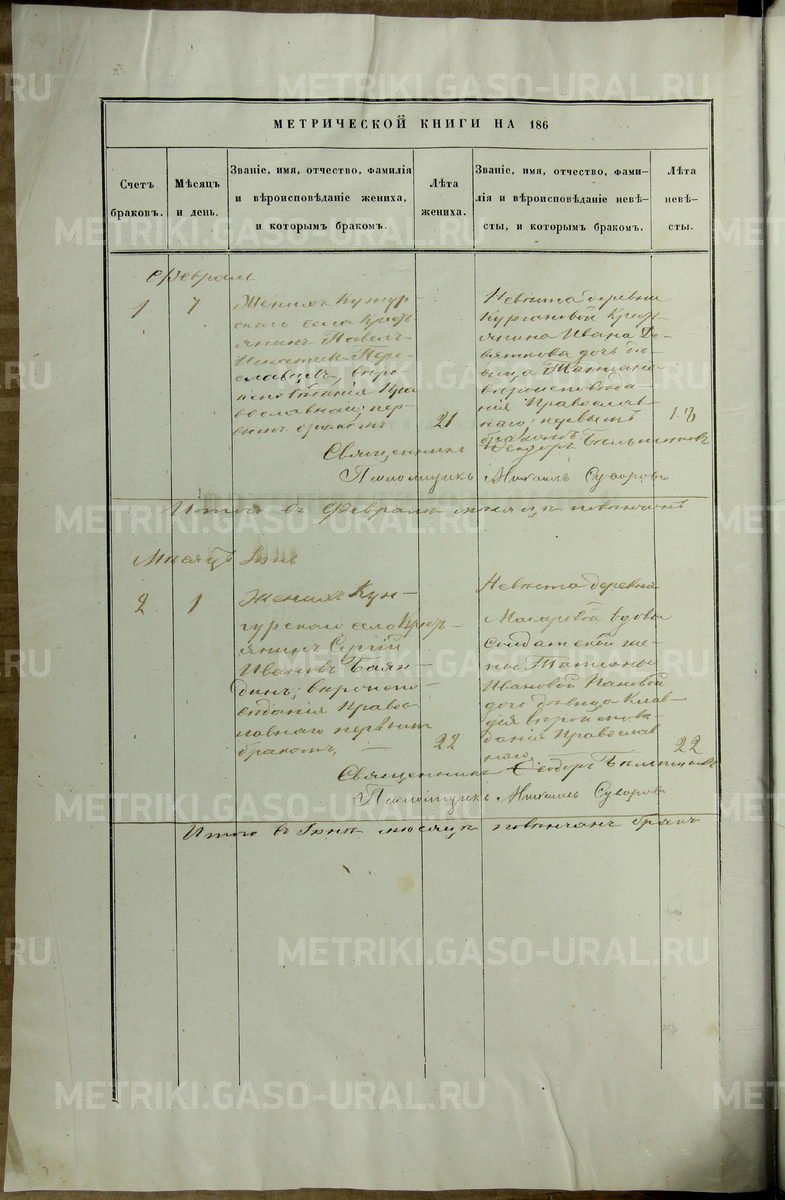 МЕТРИЧЕСКОЙ КНИГИ НА 186
Счетъ браковъ.
Мѣсяцъ и день.
Званіе, имя, отчество, фамилія
и вѣроисповѣданіе жениха,
и которымъ бракомъ.
Лѣта жениха.
Званіе, имя, отчество, фами-
лія и вѣроисповѣданіе невѣ-
сты, и которымъ бракомъ.
Лѣта невѣ-
сты.
1
7
Женихъ Кунгур-
скаго села Крест-
янинъ Павелъ
21
Невѣста деревни
Кургановой Крест-
янина Ивана Де-
вяткова дочь дѣ-
вица Татіана
вѣроисповѣда-
нія Православ-
наго, первымъ
бракомъ.
Священникъ Феодоръ
Псаломщикъ Михаилъ Суворовъ
Итого въ Февралѣ мѣсяцѣ повѣнчанъ
Мѣсяцъ Іюнь
2
1
Женихъ Кун-
гурскаго села Крест-
янинъ Сергій
Ивановъ Баян-
динъ, вѣроиспо-
вѣданія Право-
славнаго первымъ
бракомъ,
22
Невѣста деревни
Макаровой вдовы
Солдатской же-
ны Татіаны
Ивановой Пановой
дочь дѣвица Клав-
дія вѣроисповѣ-
данія Православ-
наго,
22
Священникъ Феодоръ
Псаломщикъ Михаилъ Суворовъ
Итого въ Іюнѣ мѣсяцѣ повѣнчанъ бракъ
METRIKI.GASO-URAL.RU